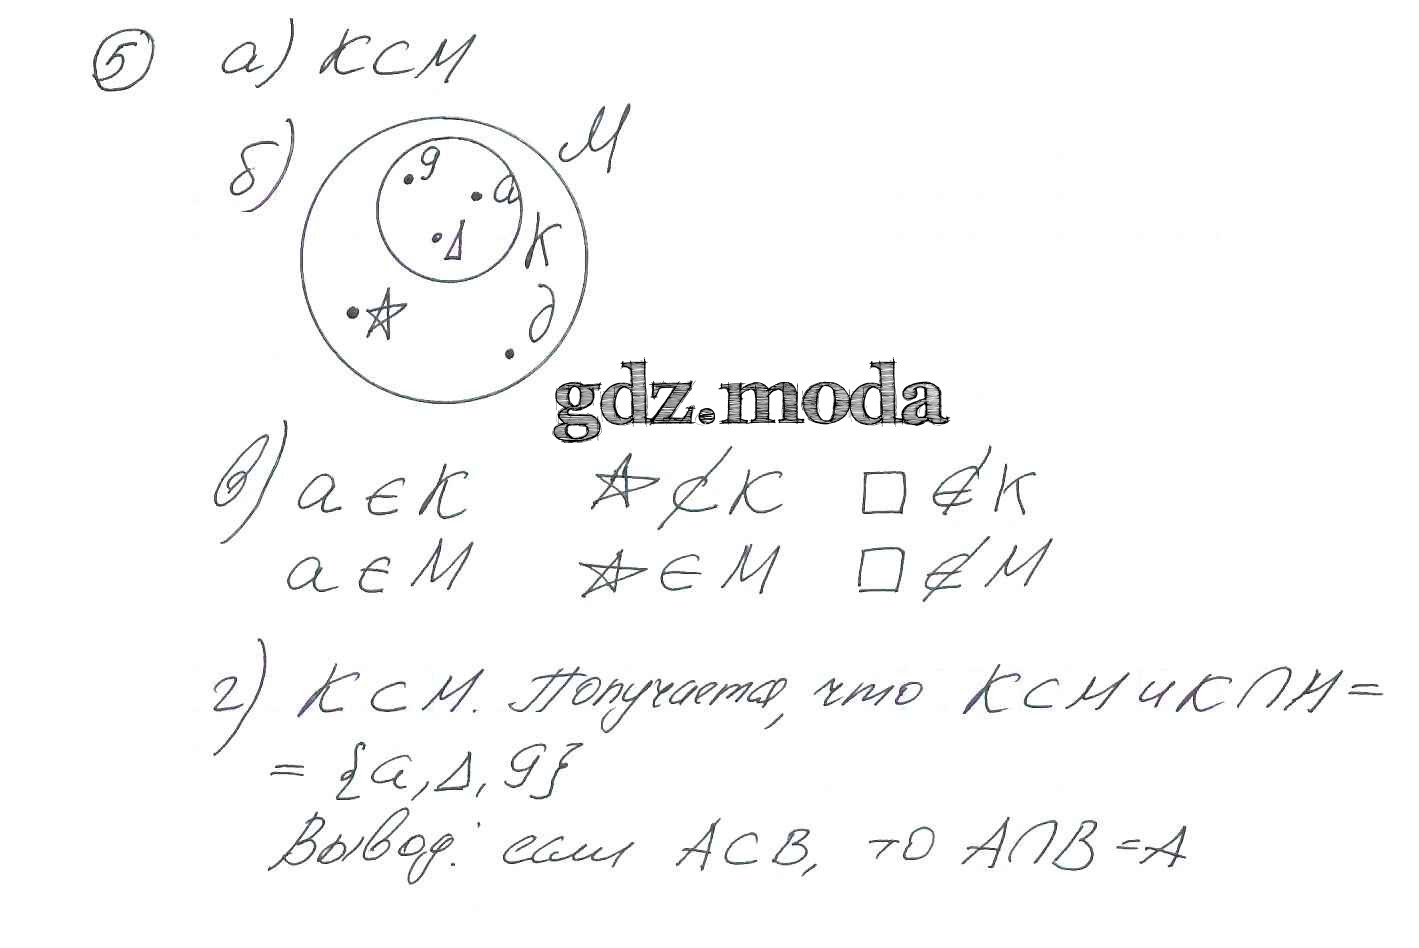 5 а) K ⊂ M
б)
M
9
a
Δ
K
☆
д
gdz.moda
в) a ∈ K ☆ ∉ K □ ∉ K
a ∈ M ☆ ∈ M □ ∉ M
г) K ⊂ M. Получается, что K ⊂ M и K ∩ M =
= {a, Δ, 9}
Вывод: если A ⊂ B, то A ∩ B = A